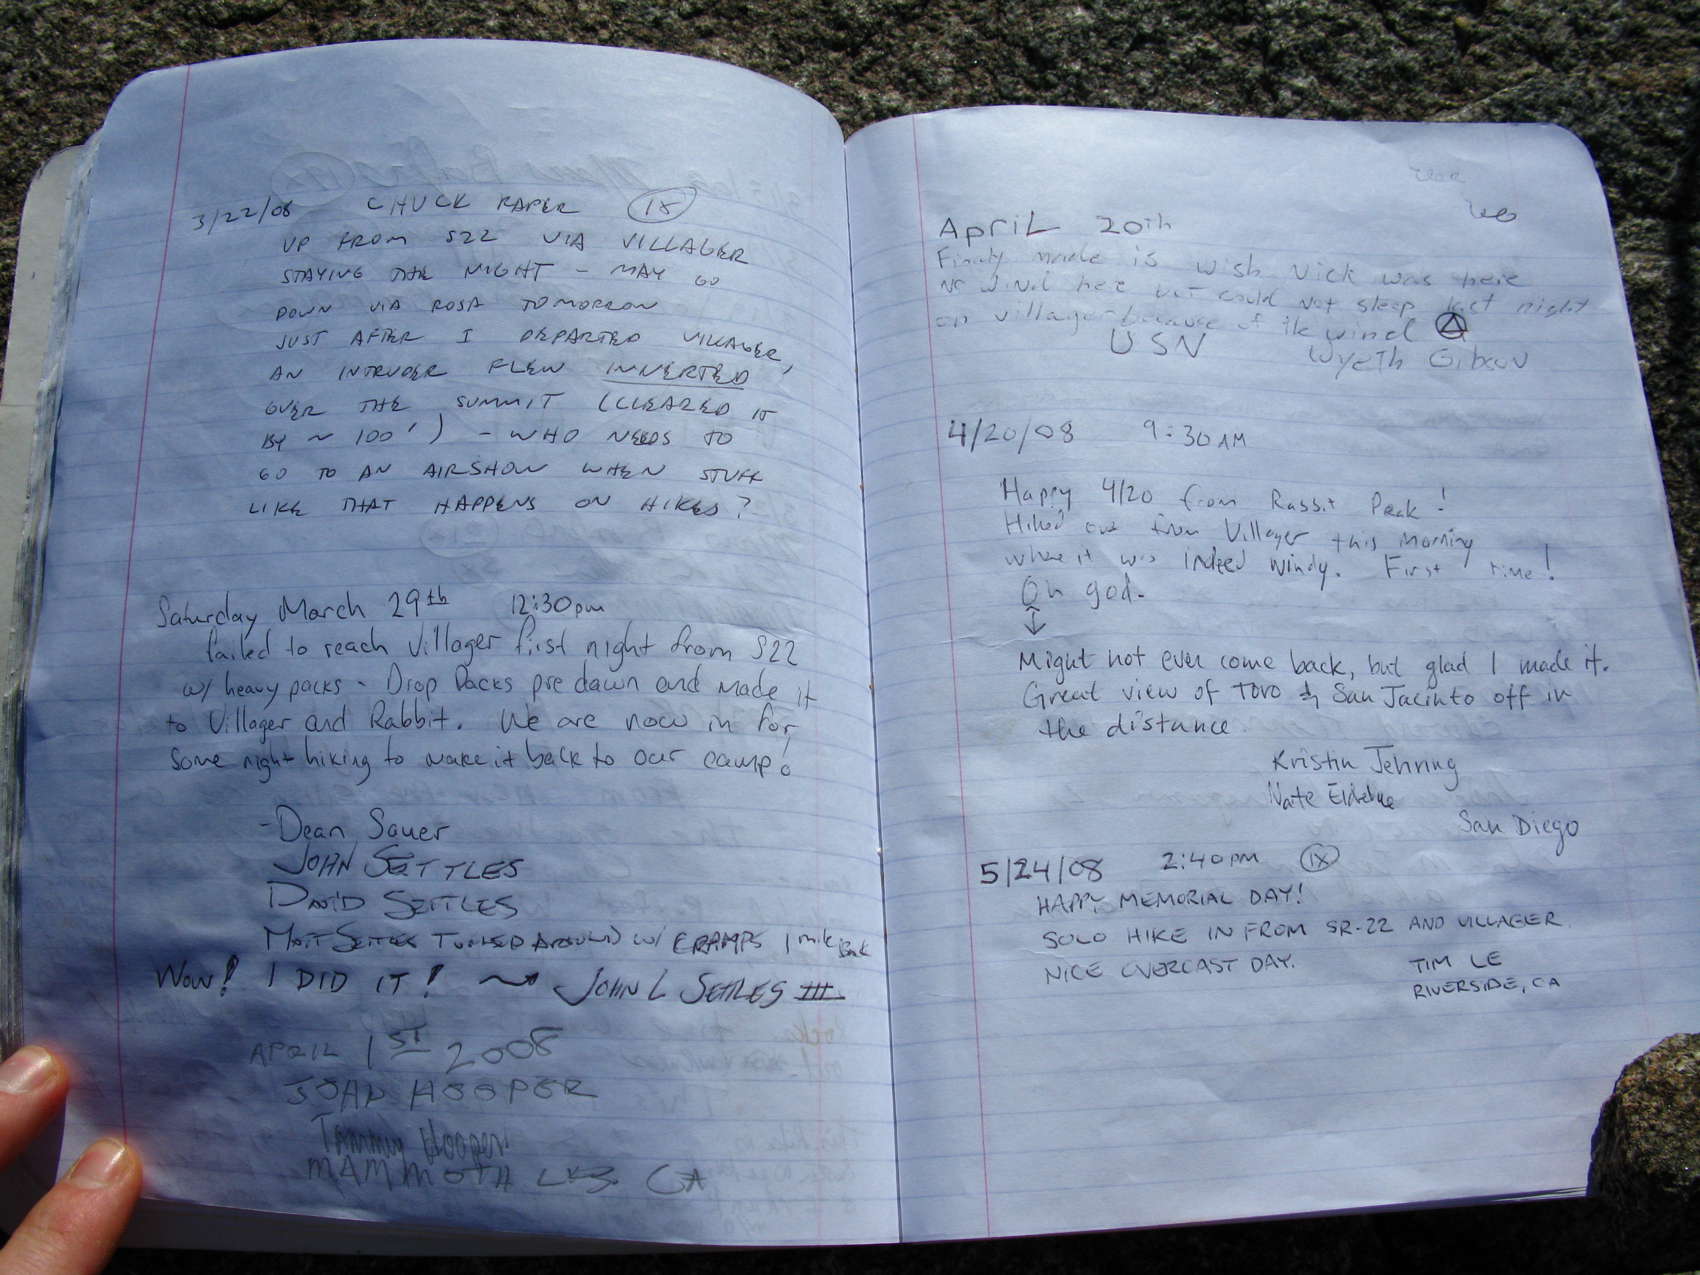 3/22/08 CHUCK RAPER
UP FROM S22 VIA VILLAGER
STAYING THE NIGHT - MAY GO
DOWN VIA ROSA TOMORROW
JUST AFTER I DEPARTED VILLAGER,
AN INTRUDER FLEW INVERTED
OVER THE SUMMIT (CLEARED IT
BY ~ 100') - WHO NEEDS TO
GO TO AN AIRSHOW WHEN STUFF
LIKE THAT HAPPENS ON HIKES?
Saturday March 29th 12:30pm
failed to reach Villager first night from S22
w/ heavy packs - Drop Packs predawn and made it
to Villager and Rabbit. We are now in for
some night hiking to make it back to our camp!
-Dean Sauer
JOHN SETTLES
DAVID SETTLES
MATT SETTLES TURNED AROUND W/ CRAMPS 1 mile back
WOW! I DID IT! JOHN L SETTLES III
APRIL 1ST 2008
HOOPER
Tammy Hooper
MAMMOTH LKS. CA
APRIL 20th
Finaly made is wish Nick was here
no wind here but could not sleep last night
on villager because of the wind
USN Wyeth Gibson
4/20/08 9:30AM
Happy 4/20 from Rabbit Peak!
Hiked over from Villager this morning
where it was indeed windy. First time!
Oh god.
Might not ever come back, but glad I made it.
Great view of Toro & San Jacinto off in
the distance
Kristin Jehring
Nate
San Diego
5/24/08 2:40PM 1X
HAPPY MEMORIAL DAY!
SOLO HIKE IN FROM SR-22 AND VILLAGER.
NICE OVERCAST DAY. TIM LE
RIVERSIDE, CA